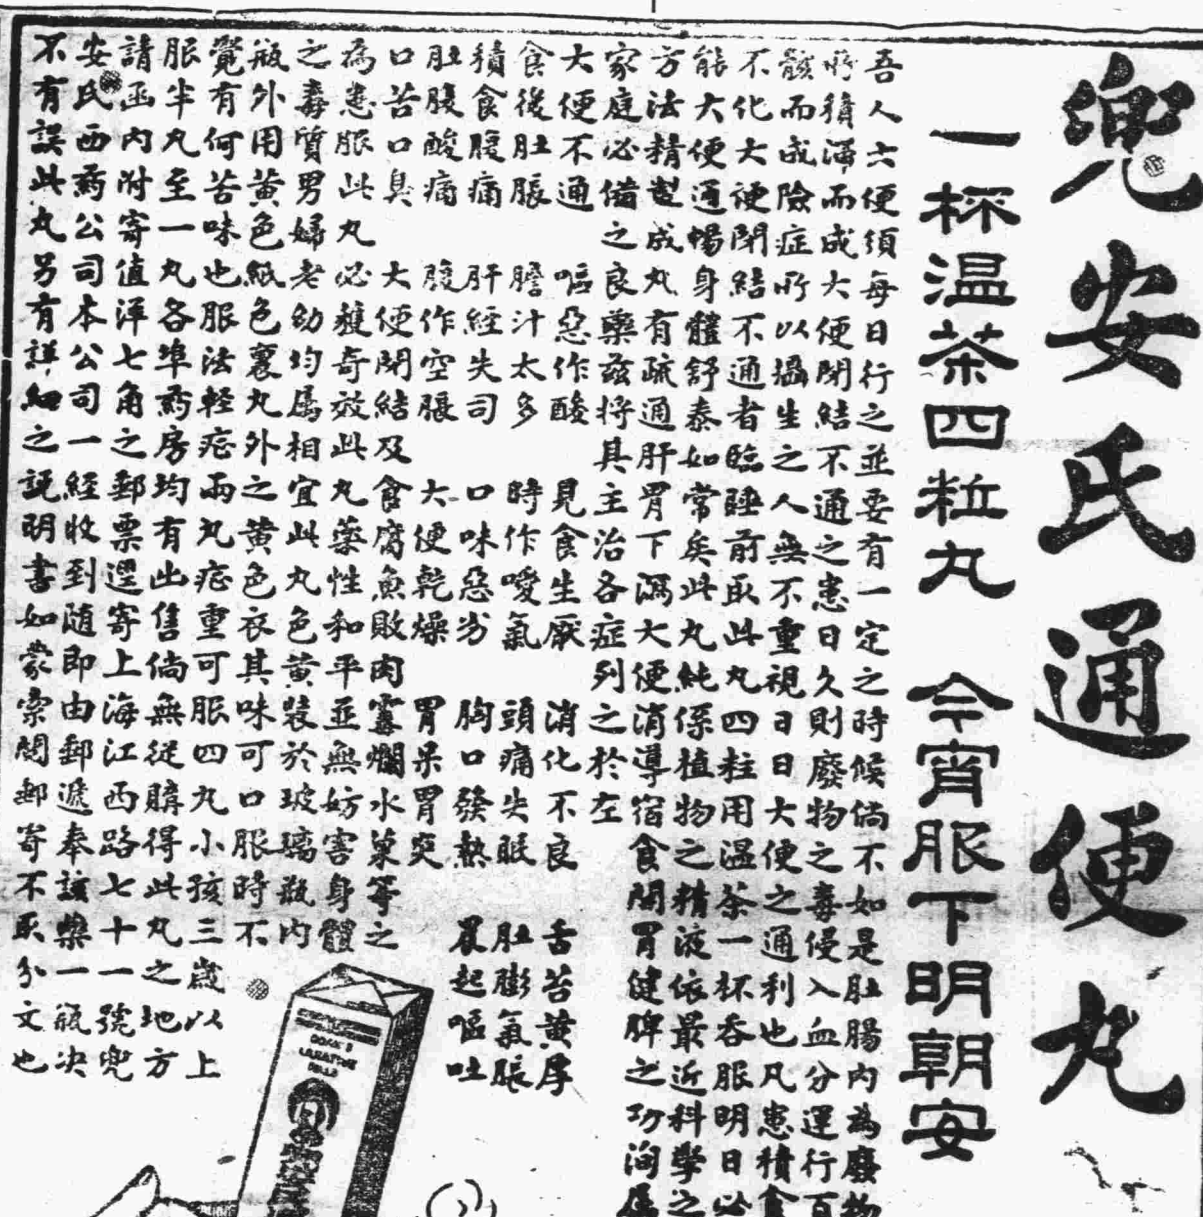 兜安氏通便丸
一杯温茶四粒丸　今宵服下明朝安
吾人六便須每日行之並要有一定之時候倘不如是肚腸内為廢物
所積滯而成大便閉結不通之患日久則廢物之毒侵入血分運行百
骸而成險症所以攝生之人無不重視日日大便之通利也凡患積食
不化大便閉結不通者臨睡前取此丸四粒用温茶一杯吞服明日必
能大便通暢身體舒泰如常矣此丸純係植物之精液依最近科學之
方法精製成丸有疏通肝胃下瀉大便消導宿食開胃健脾之功洵屬
家庭必備之良藥茲将其主治各症列之於左
大便不通　嘔惡作酸　見食生厭　消化不良　舌苦黄厚
食後肚脹　膽汁太多　時作噯氣　頭痛失眠　肚膨氣脹
積食腹痛　肝經失司　口味惡劣　胸口發熱　晨起嘔吐
肚腹酸痛　腹作空脹　大便乾燥　胃呆胃突
口苦口臭　大便閉結及食腐魚敗肉霉爛水菓等之
為患服此丸必獲奇效此丸藥性和平並無妨害身體
之毒質男婦老幼均属相宜此丸色黄裝於玻璃瓶内
瓶外用黄色紙色裹丸外之黄色衣其味可口服時不
覺有何苦味也服法輕症兩丸症重可服四丸小孩三歲以上
服半丸至一丸各埠葯房均有出售倘無從購得此丸之地方
請函内附寄值洋七角之郵票逕寄上海江西路七十一號兜
安氏西葯公司本公司一經收到随即由郵遞奉該藥一瓶决
不有誤此丸另有詳細之説明書如蒙索閱郵寄不取分文也
DOAN'S
LAXATIVE
PILLS